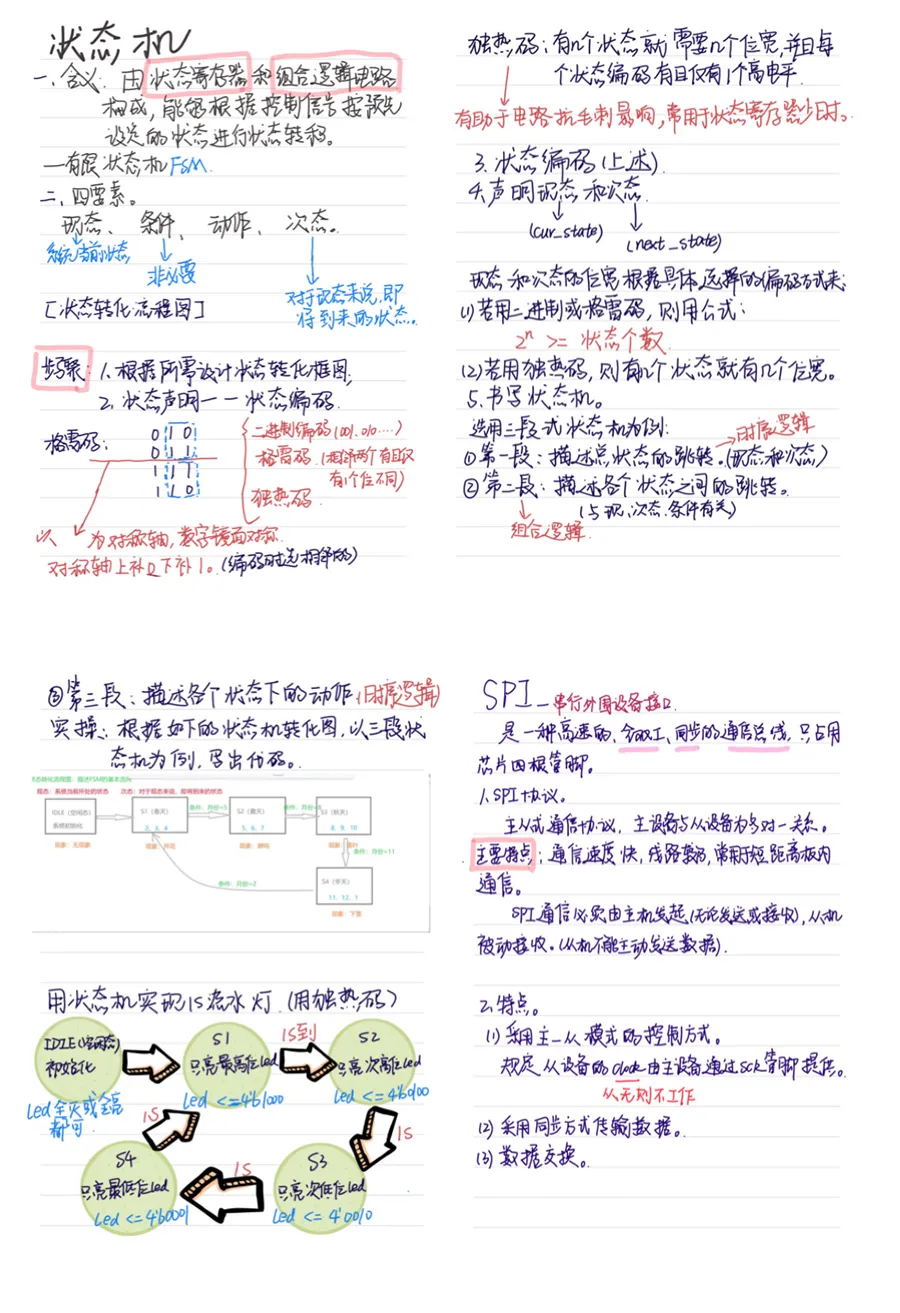 状态机
一、含义：由状态寄存器和组合逻辑电路
构成，能够根据控制信号按预先
设定的状态进行状态转移。
一有限状态机 FSM.
二、四要素。
现态、条件、动作、次态。
系统当前状态
非必要
对于现态来说，即
将到来的状态。
[状态转化流程图]
步骤：1、根据所需设计状态转化框图，
2、状态声明——状态编码
格雷码：
0 1 0
0 1 1
1 1 1
1 1 0
二进制编码(001、010....)
格雷码（相邻两个有且仅
有1个位不同）
独热码
以 为对称轴，数字镜面对称
对称轴上补0下补1。(编码时选相邻的)
独热码：有几个状态就需要几个位宽，并且每
个状态编码有且仅有1个高电平。
有助于电路抗毛刺影响，常用于状态寄存器少日时。
3、状态编码（上述）
4、声明现态和次态
(cur_state)
(next_state)
现态和次态的位宽根据具体选择的编码方式来：
(1)若用二进制或格雷码，则用公式：
2ⁿ >= 状态个数
(2)若用独热码，则有几个状态就有几个位宽。
5、书写状态机。
选用三段式状态机为例：
时序逻辑
①第一段：描述总状态的跳转。(现态和次态)
②第二段：描述各个状态之间的跳转。
(与现、次态、条件有关)
组合逻辑
③第三段：描述各个状态下的动作(时序逻辑)
实操：根据如下的状态机转化图，以三段状
态机为例，写出代码。
状态转化流程图：描述FSM的基本流向
现态：系统当前所处的状态 次态：对于现态来说，即将到来的状态
IDLE（空闲态）
系统初始化
现象：无现象
S1（春天）
2、3、4
现象：开花
条件：月份=5
S2（夏天）
5、6、7
现象：蝉鸣
S3（秋天）
8、9、10
条件：月份=11
S4（冬天）
11、12、1
现象：下雪
条件：月份=2
用状态机实现1s流水灯.(用独热码)
IDLE(空闲态)
初始化
Led全灭或全亮
都可
S1
只亮最高位led
Led <=4'b1000
1s到
S2
只亮次高位led
Led <=4'b0100
1s
S3
只亮次低位led
Led <=4'0010
1s
S4
只亮最低位led
Led <=4'b0001
1s
SPI—串行外围设备接口
是一种高速的、全双工、同步的通信总线，只占用
芯片四根管脚。
1、SPI协议。
主从式通信协议，主设备与从设备为多对一关系。
主要特点：通信速度快，线路较多，常用于短距离板内
通信。
SPI通信必须由主机发起(无论发送或接收)，从机
被动接收。(从机不能主动发送数据).
2、特点。
(1)采用主一从模式的控制方式。
规定从设备的clock由主设备通过sck管脚提供。
从无则不工作
(2)采用同步方式传输数据。
(3)数据交换。